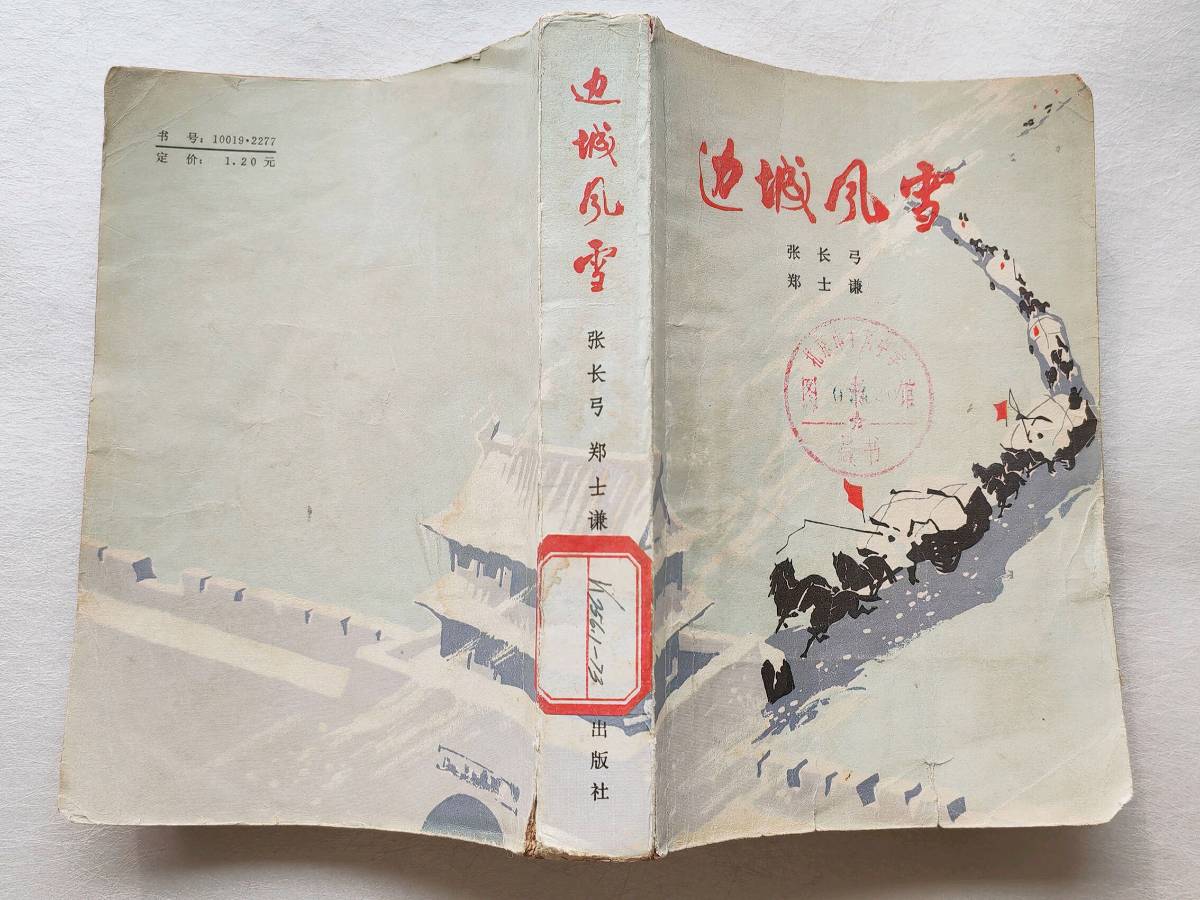 书 号：10019·2277
定 价： 1.20 元
边城风雪
张长弓 郑士谦
出版社
K3561-73
边城风雪
张 长 弓
郑 士 谦
图 馆
书